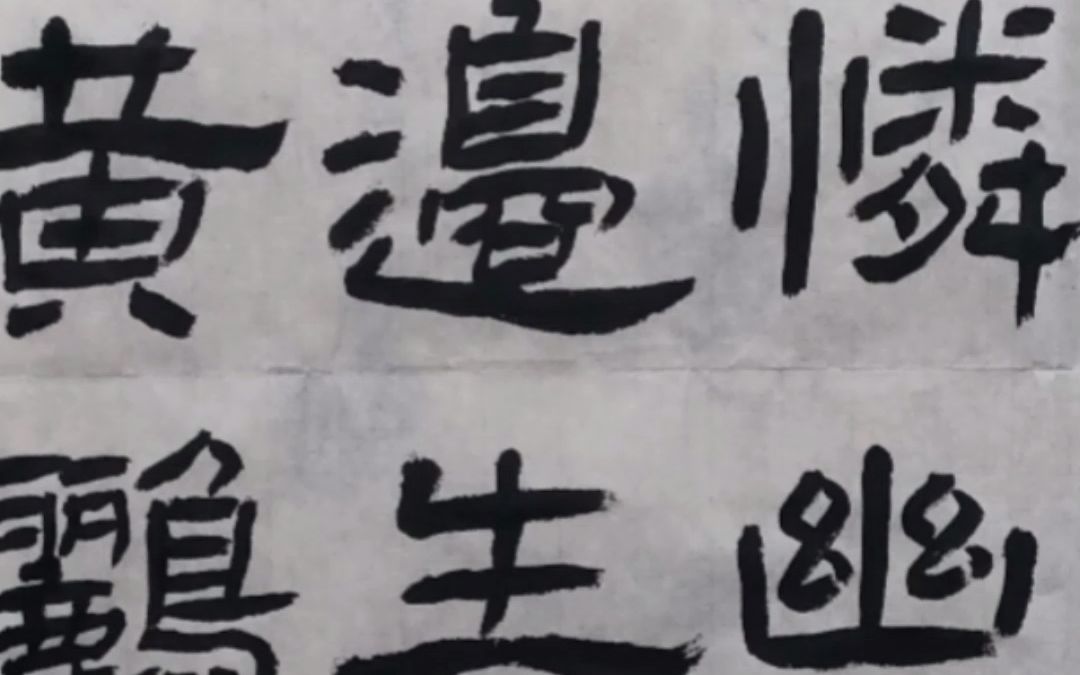 憐幽
邊生
黃鸝